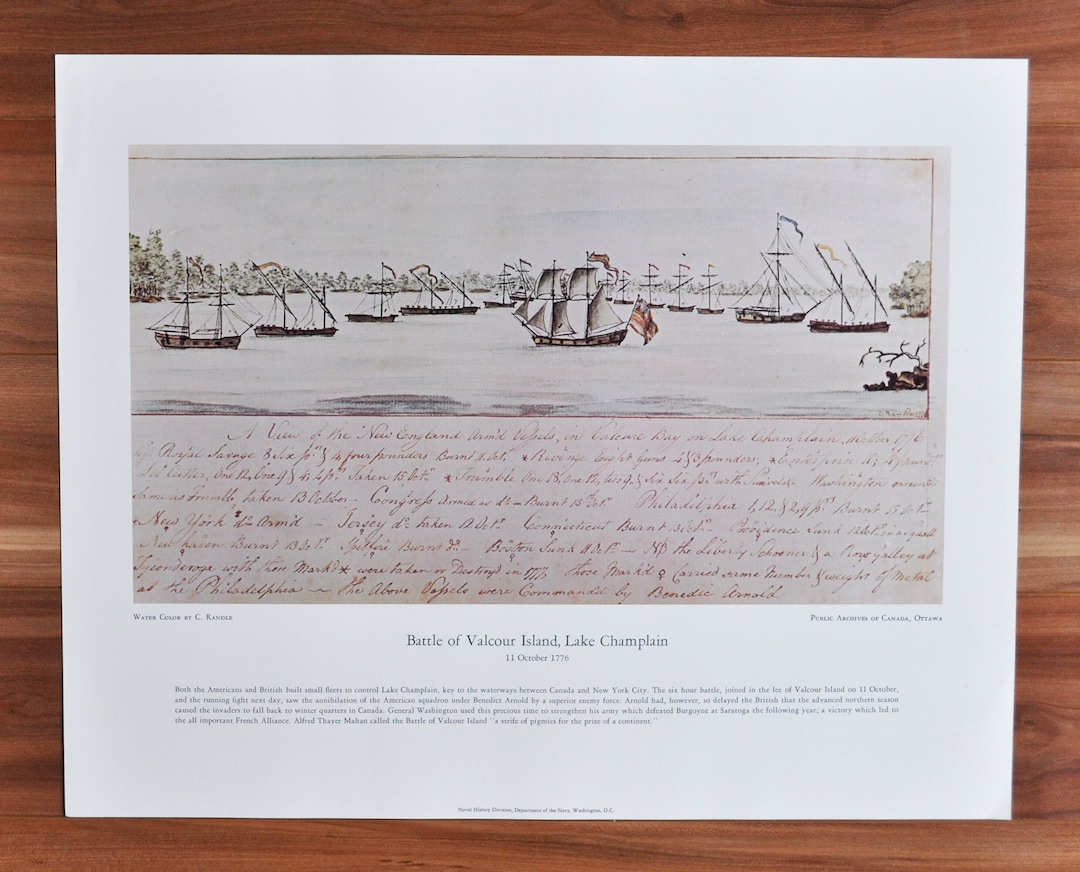 A View of the New England Arm'd Vessels, in Valcure Bay on Lake Champlain, 11 October 1776
Royal Savage 8 Six pr. & 4 four pounders Burnt 11 Octr. * Revenge Eight Guns 4 & 3 pounders; *
cutter, One 12, One 9 & 4, 4 pr. Taken 15 Octr. * Trumble One 18, One 12, two 9, & Six Six pr. with Swivels - Washington
same as trumble taken 13 October - Congress Armed as do - Burnt 15th Octr. Philadelphia 1, 12, & 2, 9 pr. Burnt
* New York do Arm'd - Jersey do taken 12 Octr. Connecticut Burnt 13 Octr. Providence Sunk 12 Octr.
New haven Burnt 13 Octr. Spitfire Burnt do. - Boston Sunk - NB the Liberty Schooner & a Row galley at
Ticonderoga with them Mark'd * were taken or Destroy'd in 1777 those Mark'd Carried same Number & weight of Metal
as the Philadelphia ~ the Above Vessels were Command'd by Benedic Arnold
WATER COLOR BY C. RANDLE
PUBLIC ARCHIVES OF CANADA, OTTAWA
Battle of Valcour Island, Lake Champlain
11 October 1776
Both the Americans and British built small fleets to control Lake Champlain, key to the waterways between Canada and New York City. The six hour battle, joined in the lee of Valcour Island on 11 October,
and the running fight next day, saw the annihilation of the American squadron under Benedict Arnold by a superior enemy force. Arnold had, however, so delayed the British that the advanced northern season
caused the invaders to fall back to winter quarters in Canada. General Washington used this precious time to strengthen his army which defeated Burgoyne at Saratoga the following year; a victory which led to
the all important French Alliance. Alfred Thayer Mahan called the Battle of Valcour Island "a strife of pigmies for the prize of a continent."
Naval History Division, Department of the Navy, Washington, D.C.